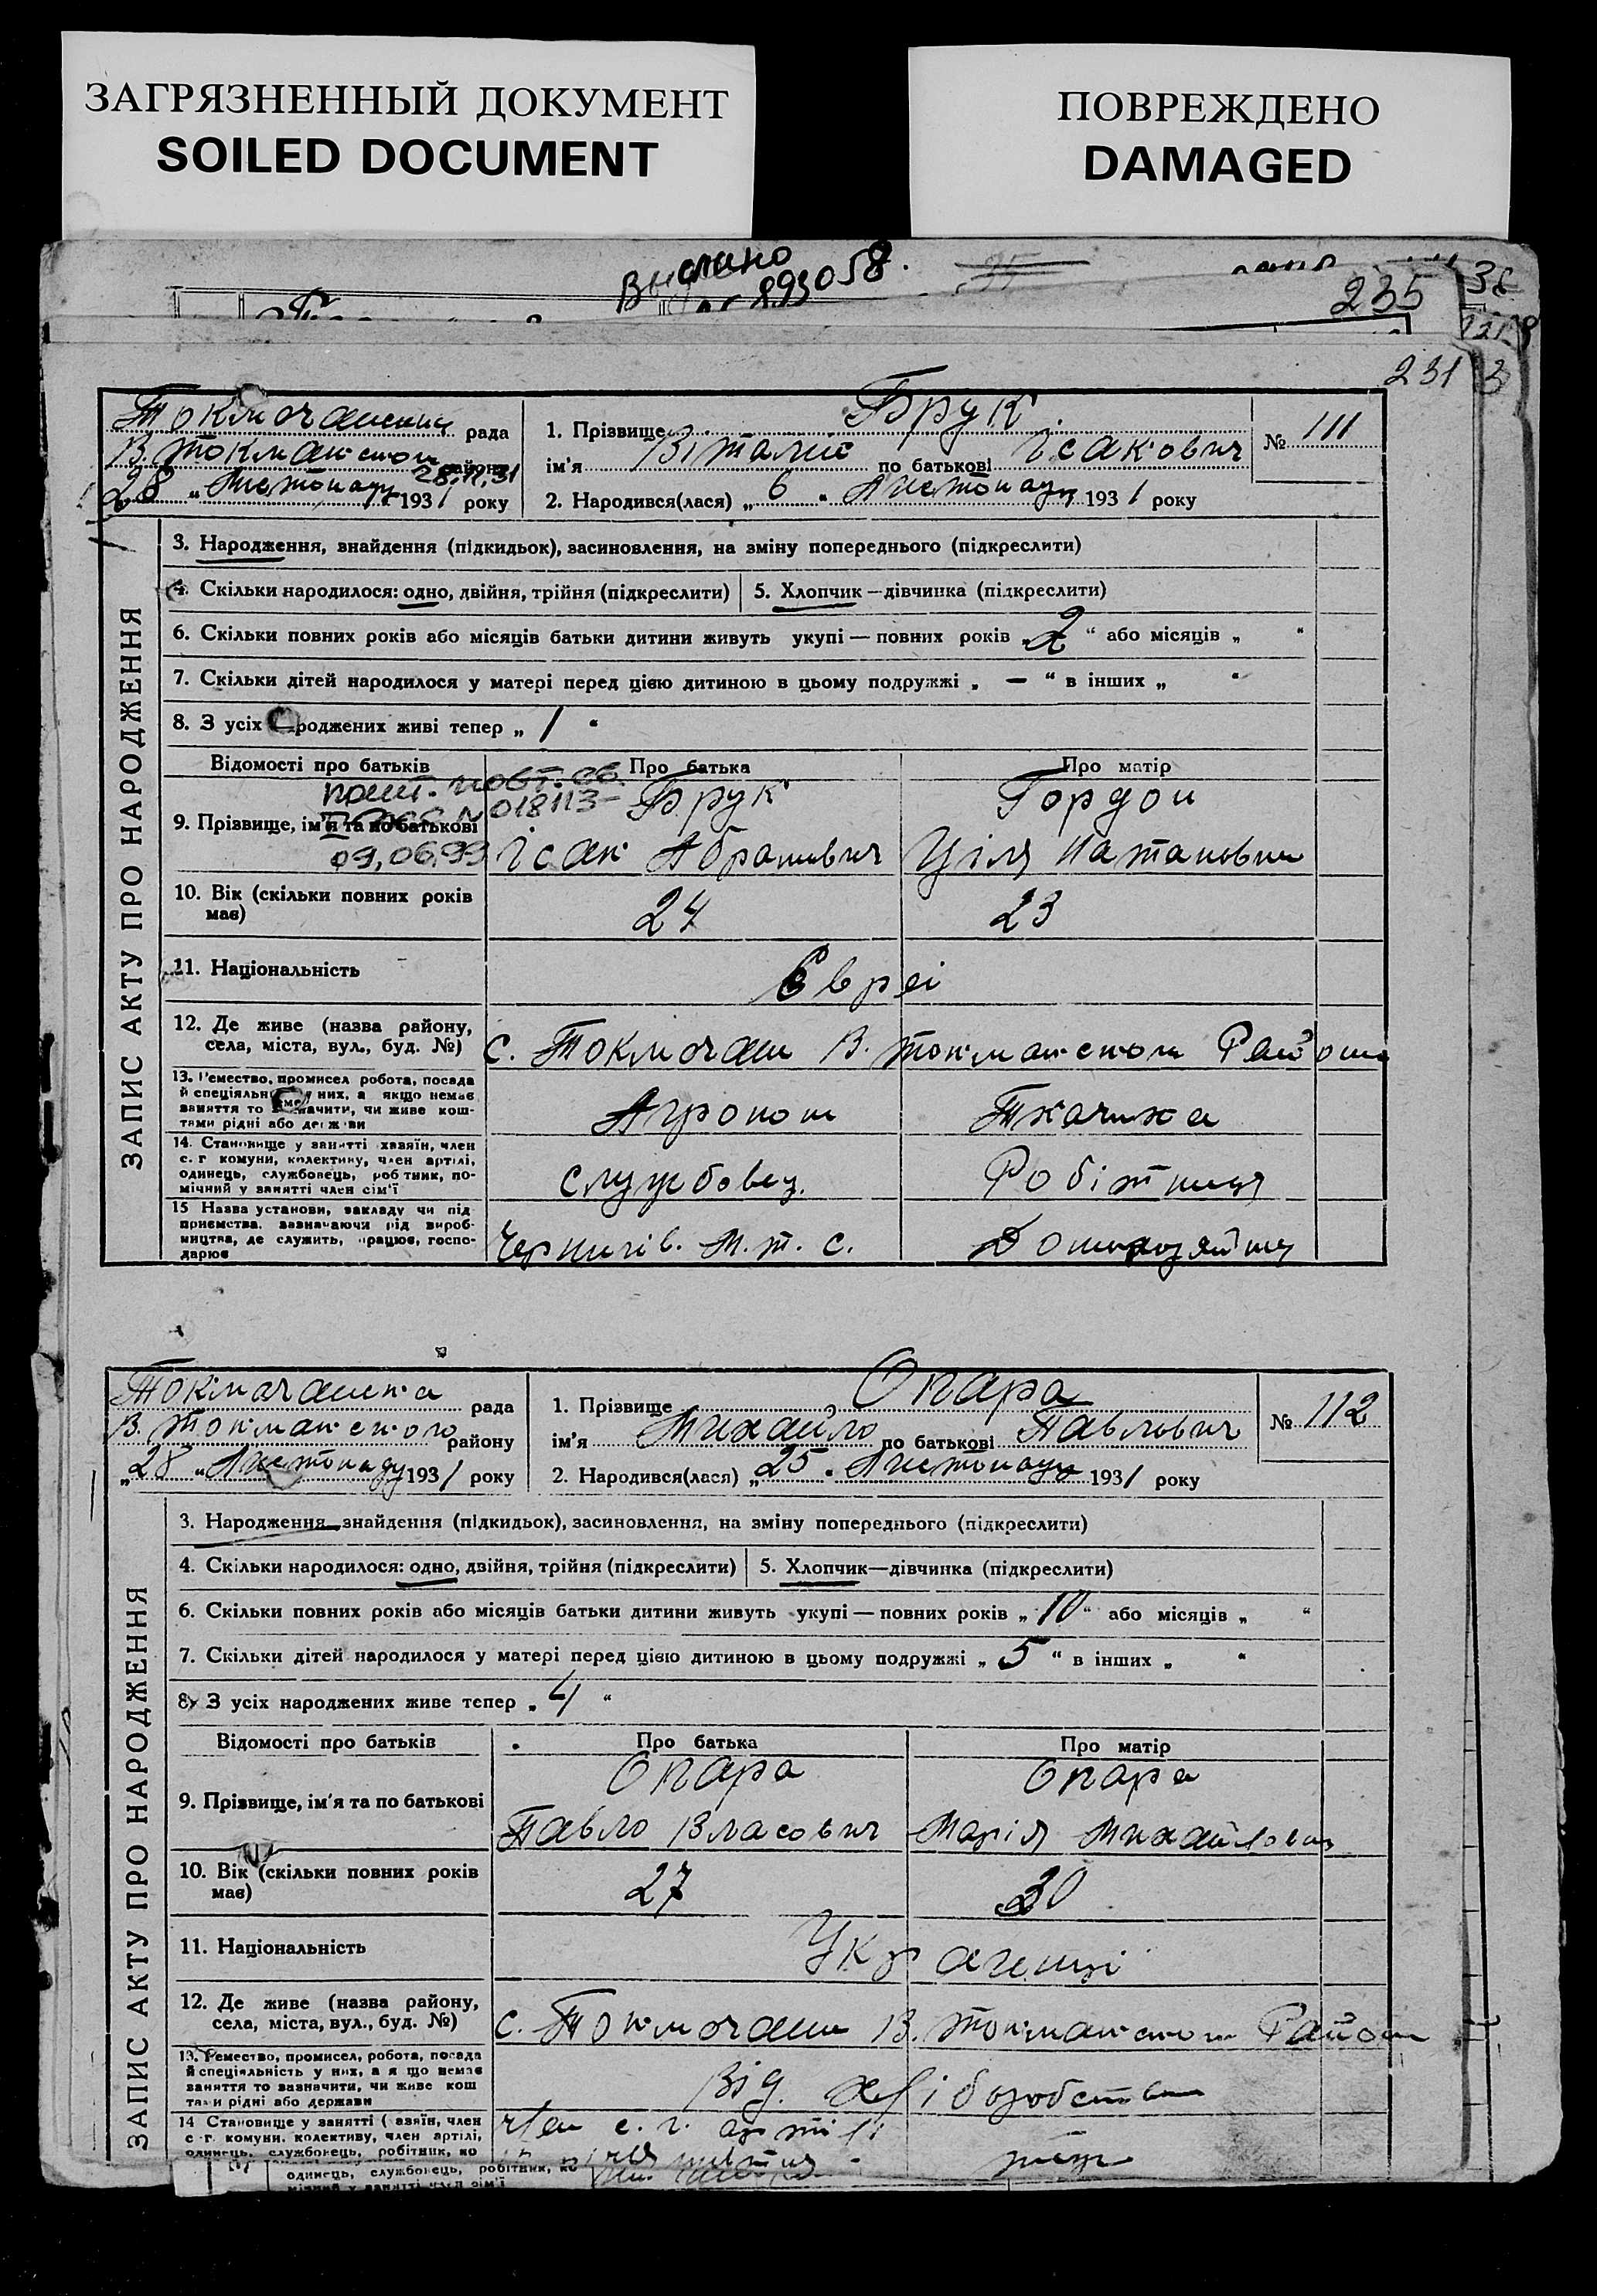 ЗАГРЯЗНЕННЫЙ ДОКУМЕНТ
SOILED DOCUMENT
ПОВРЕЖДЕНО
DAMAGED
Выслано
893058.
235
36
231
3
Токмачанська рада
В. Токмакском району
28.11.31
„28 „ Листопаду 1931 року
1. Прізвище Брук
ім'я Віталій по батькові Ісакович
2. Народився(лася) „ 6 “ Листопаду 1931 року
№ 111
ЗАПИС АКТУ ПРО НАРОДЖЕННЯ
3. Народження, знайдення (підкидьок), засиновлення, на зміну попереднього (підкреслити)
4. Скільки народилося: одно, двійня, трійня (підкреслити) 5. Хлопчик—дівчинка (підкреслити)
6. Скільки повних років або місяців батьки дитини живуть укупі — повних років „ 2 “ або місяців „ “
7. Скільки дітей народилося у матері перед цією дитиною в цьому подружжі „ — “ в інших „ “
8. З усіх народжених живі тепер „ 1 “
Відомості про батьків Про батька Про матір
повт. св.
№ 018113
09.06.99
9. Прізвище, ім'я та по батькові
Брук Гордон
Ісак Абрамович Ціля Натановна
10. Вік (скільки повних років має) 24 23
11. Національність Євреі
12. Де живе (назва району, села, міста, вул., буд. №)
с. Токмачан В. Токмакском Району
13. Ремество, промисел робота, посада
й спеціяльн них, а якщо немає
заняття то зазначити, чи живе кош-
тами рідні або держави
Агроном Ткачиха
14. Становище у занятті хазяїн, член
с. г комуни, колективу, член артілі,
одинець, службовець, робітник, по-
мічний у занятті член сім'ї
Службовец. Робітниця
15 Назва установи, закладу чи під
приємства, зазначаючи рід вироб-
ництва, де служить, працює, госпо-
дарює
Чернигів. М. т. с. Домохозяйка
Токмачанська рада
В. Токмакского району
„28 „ Листопаду 1931 року
1. Прізвище Опара
ім'я Михайло по батькові Павлович
2. Народився(лася) „ 25 “ Листопаду 1931 року
№ 112
ЗАПИС АКТУ ПРО НАРОДЖЕННЯ
3. Народження знайдення (підкидьок), засиновлення, на зміну попереднього (підкреслити)
4. Скільки народилося: одно, двійня, трійня (підкреслити) 5. Хлопчик—дівчинка (підкреслити)
6. Скільки повних років або місяців батьки дитини живуть укупі — повних років „ 10 “ або місяців „ “
7. Скільки дітей народилося у матері перед цією дитиною в цьому подружжі „ 5 “ в інших „ “
8. З усіх народжених живе тепер „ 4 “
Відомості про батьків Про батька Про матір
9. Прізвище, ім'я та по батькові
Опара Опара
Павло Власович Марія Михайловна
10. Вік (скільки повних років має) 27 30
11. Національність Украенці
12. Де живе (назва району, села, міста, вул., буд. №)
с. Токмачан В. Токмакском Району
13. Ремество, промисел, робота, посада
й спеціяльність у них, а я що немає
заняття то зазначити, чи живе кош
тами рідні або держави
Від. хліборобства
14 Становище у занятті ( азяїн, член
с -г. комуни, колективу, член артілі,
одинець, службовець, робітник, по
член с. г. артілі
одинець, службовець, робітник, по
мічний у занятті член сім'ї